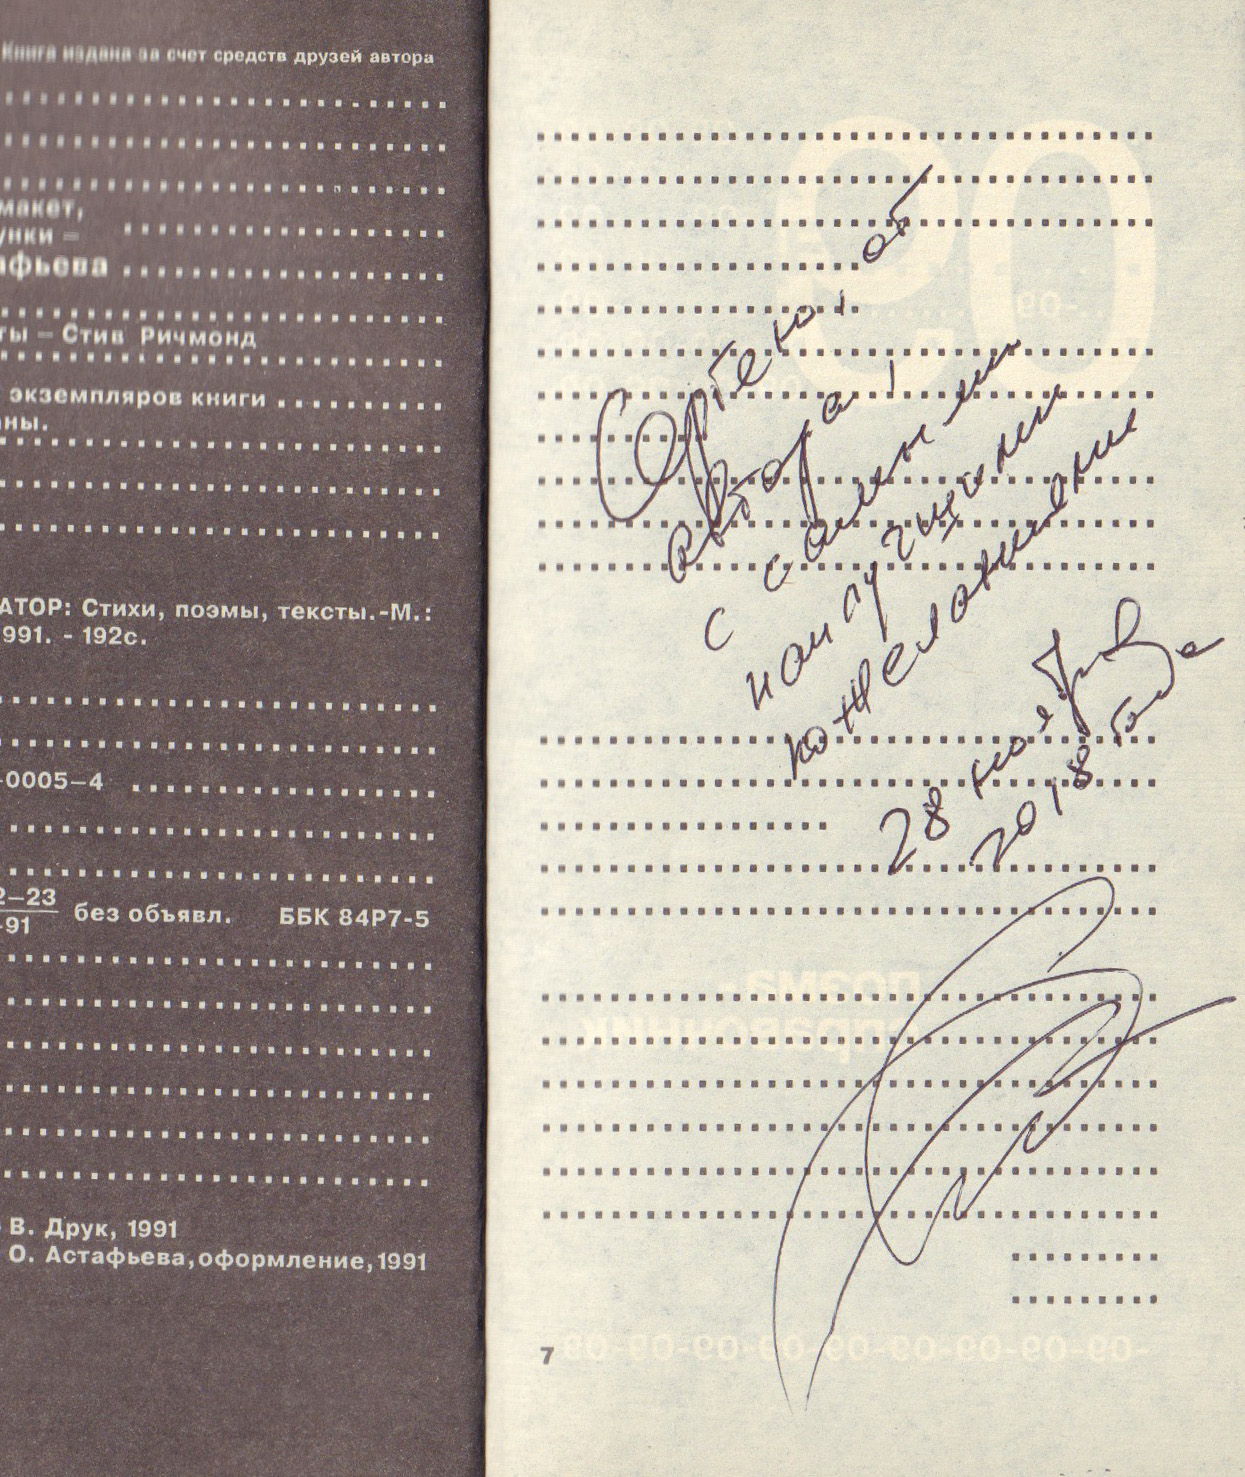 Книга издана за счет средств друзей автора
макет,
унки –
афьева
ты – Стив Ричмонд
экземпляров книги
ны.
АТОР: Стихи, поэмы, тексты.-М.:
991. - 192с.
-0005-4
2-23
-91
без объявл. ББК 84Р7-5
В. Друк, 1991
О. Астафьева, оформление, 1991
Сергею, от
автора,
с самыми
наилучшими
пожеланиями
28 ноября
2018 года
09
-09
поэма-
справочник
7
-09-09-09-09-09-09-09-09-09